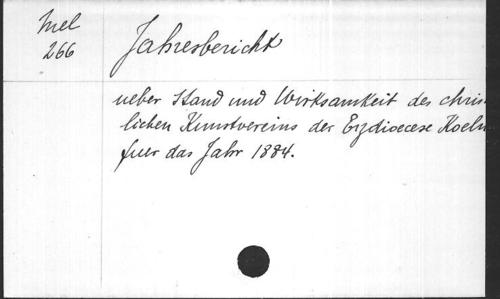 Mel
266
Jahresbericht
ueber Stand und Wirksamkeit des chris
lichen Kunstvereins der Erzdioecese Koeln
fuer das Jahr 1884.